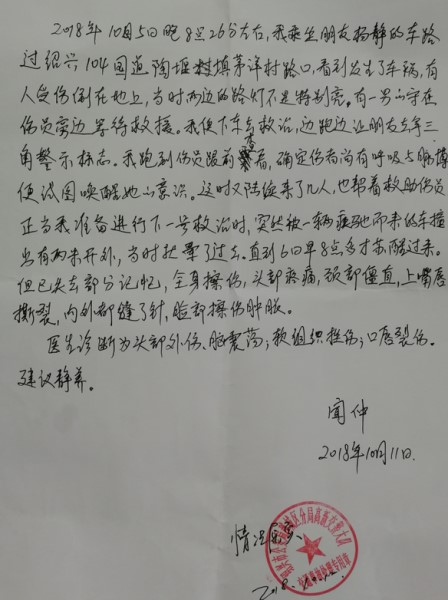 2018年10月5日晚8点26分左右,我乘坐朋友杨静的车路
过绍兴104国道陶堰镇茅洋村路口,看到发生了车祸,有
人受伤倒在地上,当时两边的路灯不是特别亮。有一男子守在
伤员旁边等待救援。我便下车去救治,边跑边让朋友去拿三
角警示标志。我跑到伤员跟前查看,确定伤者尚有呼吸与脉搏
便试图唤醒她的意识。这时又陆续来了几人,也帮着救助伤员
正当我准备进行下一步救治时,突然被一辆疾驰而来的车撞
出有两米开外,当时就晕了过去。直到6日早8点多才苏醒过来。
但已失去部分记忆,全身擦伤,头部疼痛,颈部僵直,上嘴唇
撕裂,内外都缝了针,脸部擦伤肿胀。
医生诊断为头部外伤、脑震荡;软组织挫伤;口唇裂伤。
建议静养。
闻仲
2018年10月11日.
情况属实
2018.